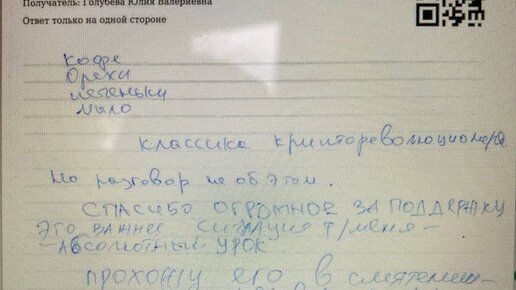 Получатель: Голубева Юлия Валериевна
Ответ только на одной стороне
Кофе
Орехи
печеньки
мыло
классика крипто­революционера
Но разговор не об этом.
СПАСИБО ОГРОМНОЕ ЗА ПОДДЕРЖКУ
ЭТО ВАЖНЕЕ СИТУАЦИЯ Д/МЕНЯ -
- АБСОЛЮТНЫЙ УРОК.
ПРОХОЖУ ЕГО В СМЯТЕНИИ -